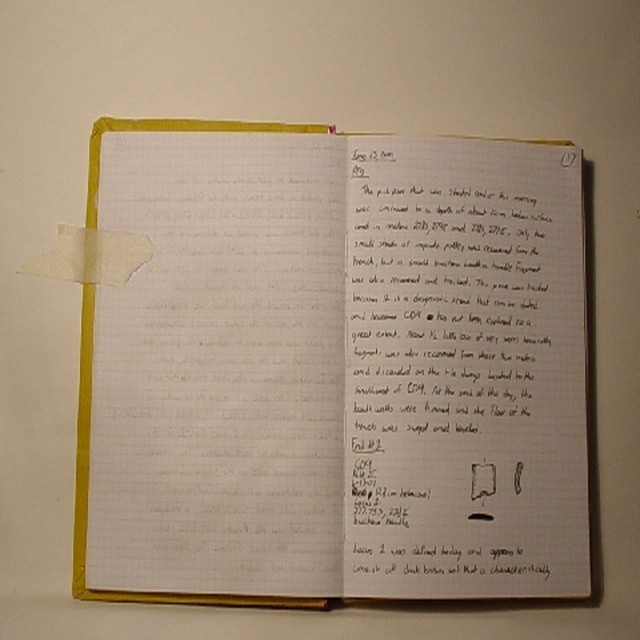 June 13, 2001
17
PM
The pick pass that was started earlier this morning
was continued to a depth of about cm below surface
and in meters 27S, 27E and 28S, 27E. Only two
small sherds of pottery was recovered from the
trench, but a small handle fragment
was also recovered and tracked. This piece was tracked
because it is a diagnostic sherd that can be dated
and because CD9 has not been explored to a
great extent. About 1/2 little of very worn
fragments was also recovered from these two meters
and discarded on the tile dumps located to the
southwest of CD9. For the rest of the day, the
baulk walls were trimmed and the floor of the
trench was swept and leveled.
Find #1
CD9
cm below
Locus 2
handle
Locus 2 was defined today and appears to
consist of dark brown soil that is characteristically